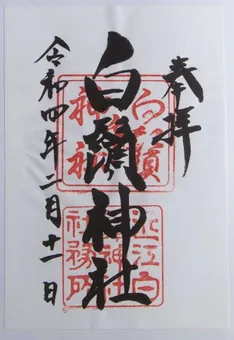 奉拝
白鬚神社
令和四年二月十一日
白鬚神社
近江白鬚神社社務所